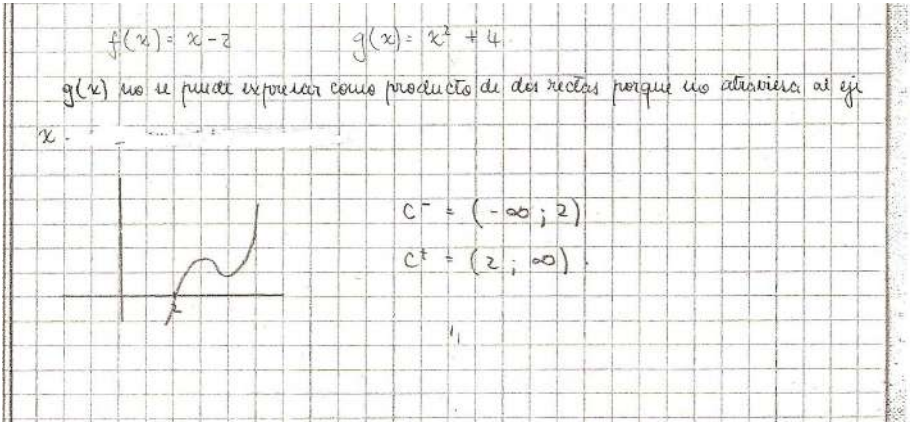 f(x) = x-2 g(x) = x² + 4
g(x) no se puede expresar como producto de dos rectas porque no atraviesa al eje
x.
C⁻ = (-∞ ; 2)
C⁺ = (2 ; ∞).
2